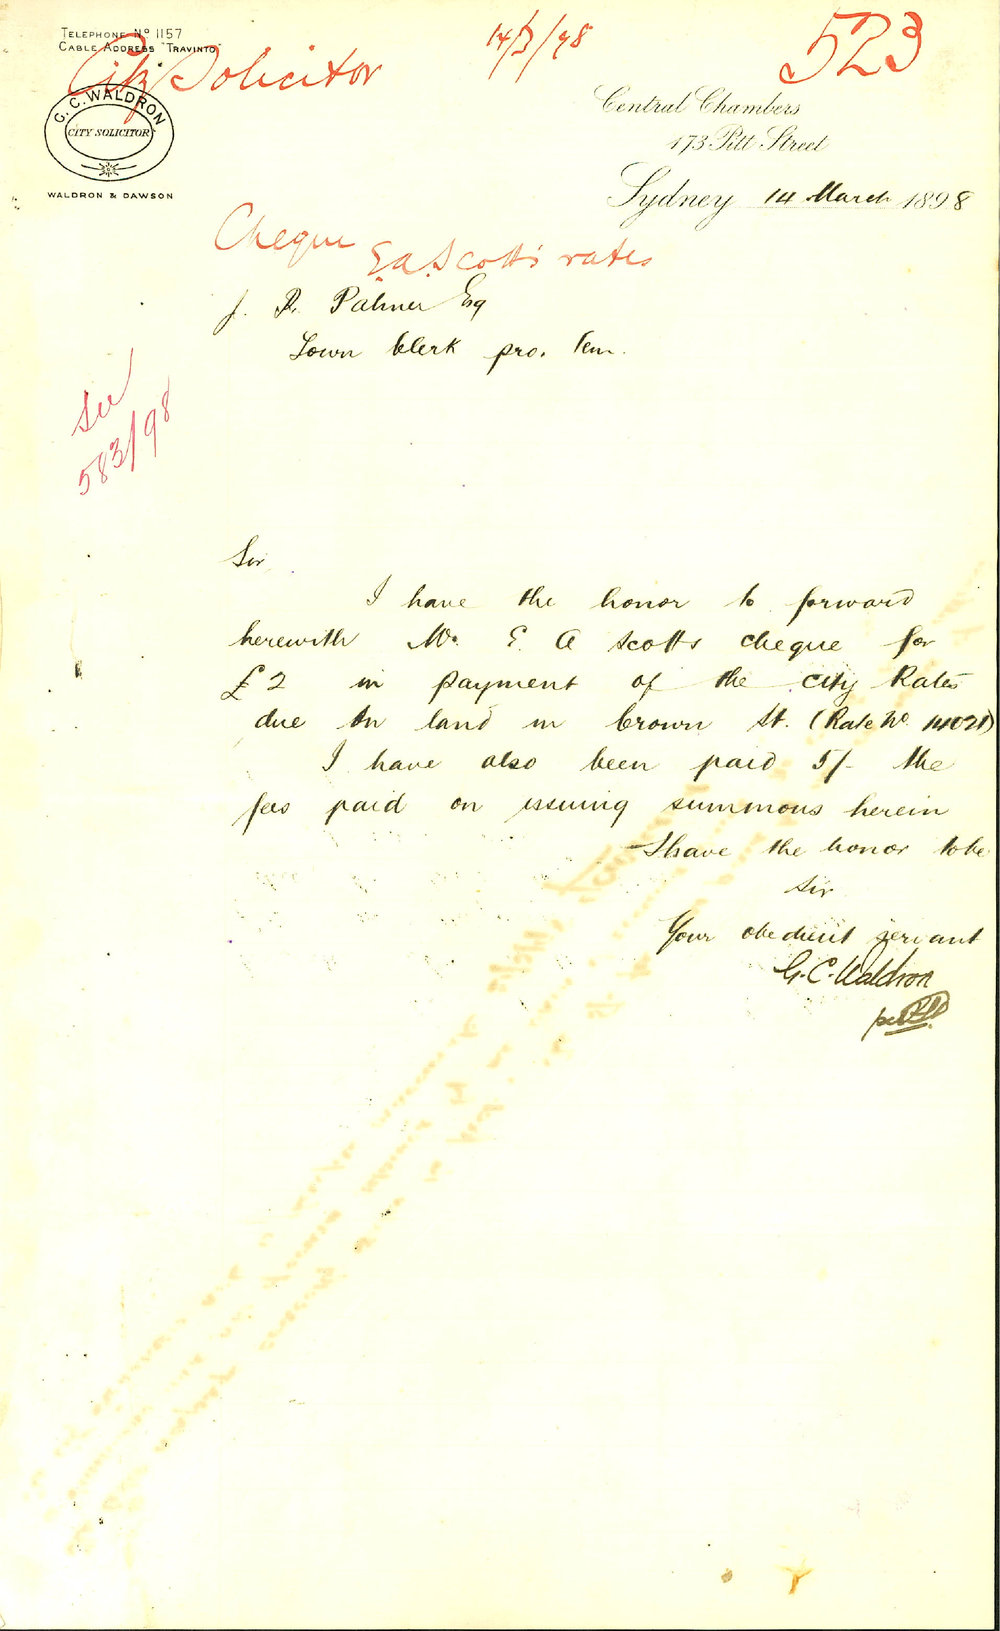 TELEPHONE Nº 1157
CABLE ADDRESS "TRAVINTO"
City Solicitor
14/3/98
523
G. C. WALDRON
CITY SOLICITOR
WALDRON & DAWSON
Central Chambers
173 Pitt Street
Sydney 14 March 1898
Cheque
E. A. Scott's rates
J. Palmer Esq
Town Clerk pro. tem.
See
583/98
Sir
I have the honor to forward
herewith Mr. E A Scotts cheque for
£2 in payment of the city Rates
due on land in brown St. (Rate No.
I have also been paid 5/- the
fees paid on issuing summons herein
I have the honor to be
Sir
Your obedient servant
G. C. Waldron
per